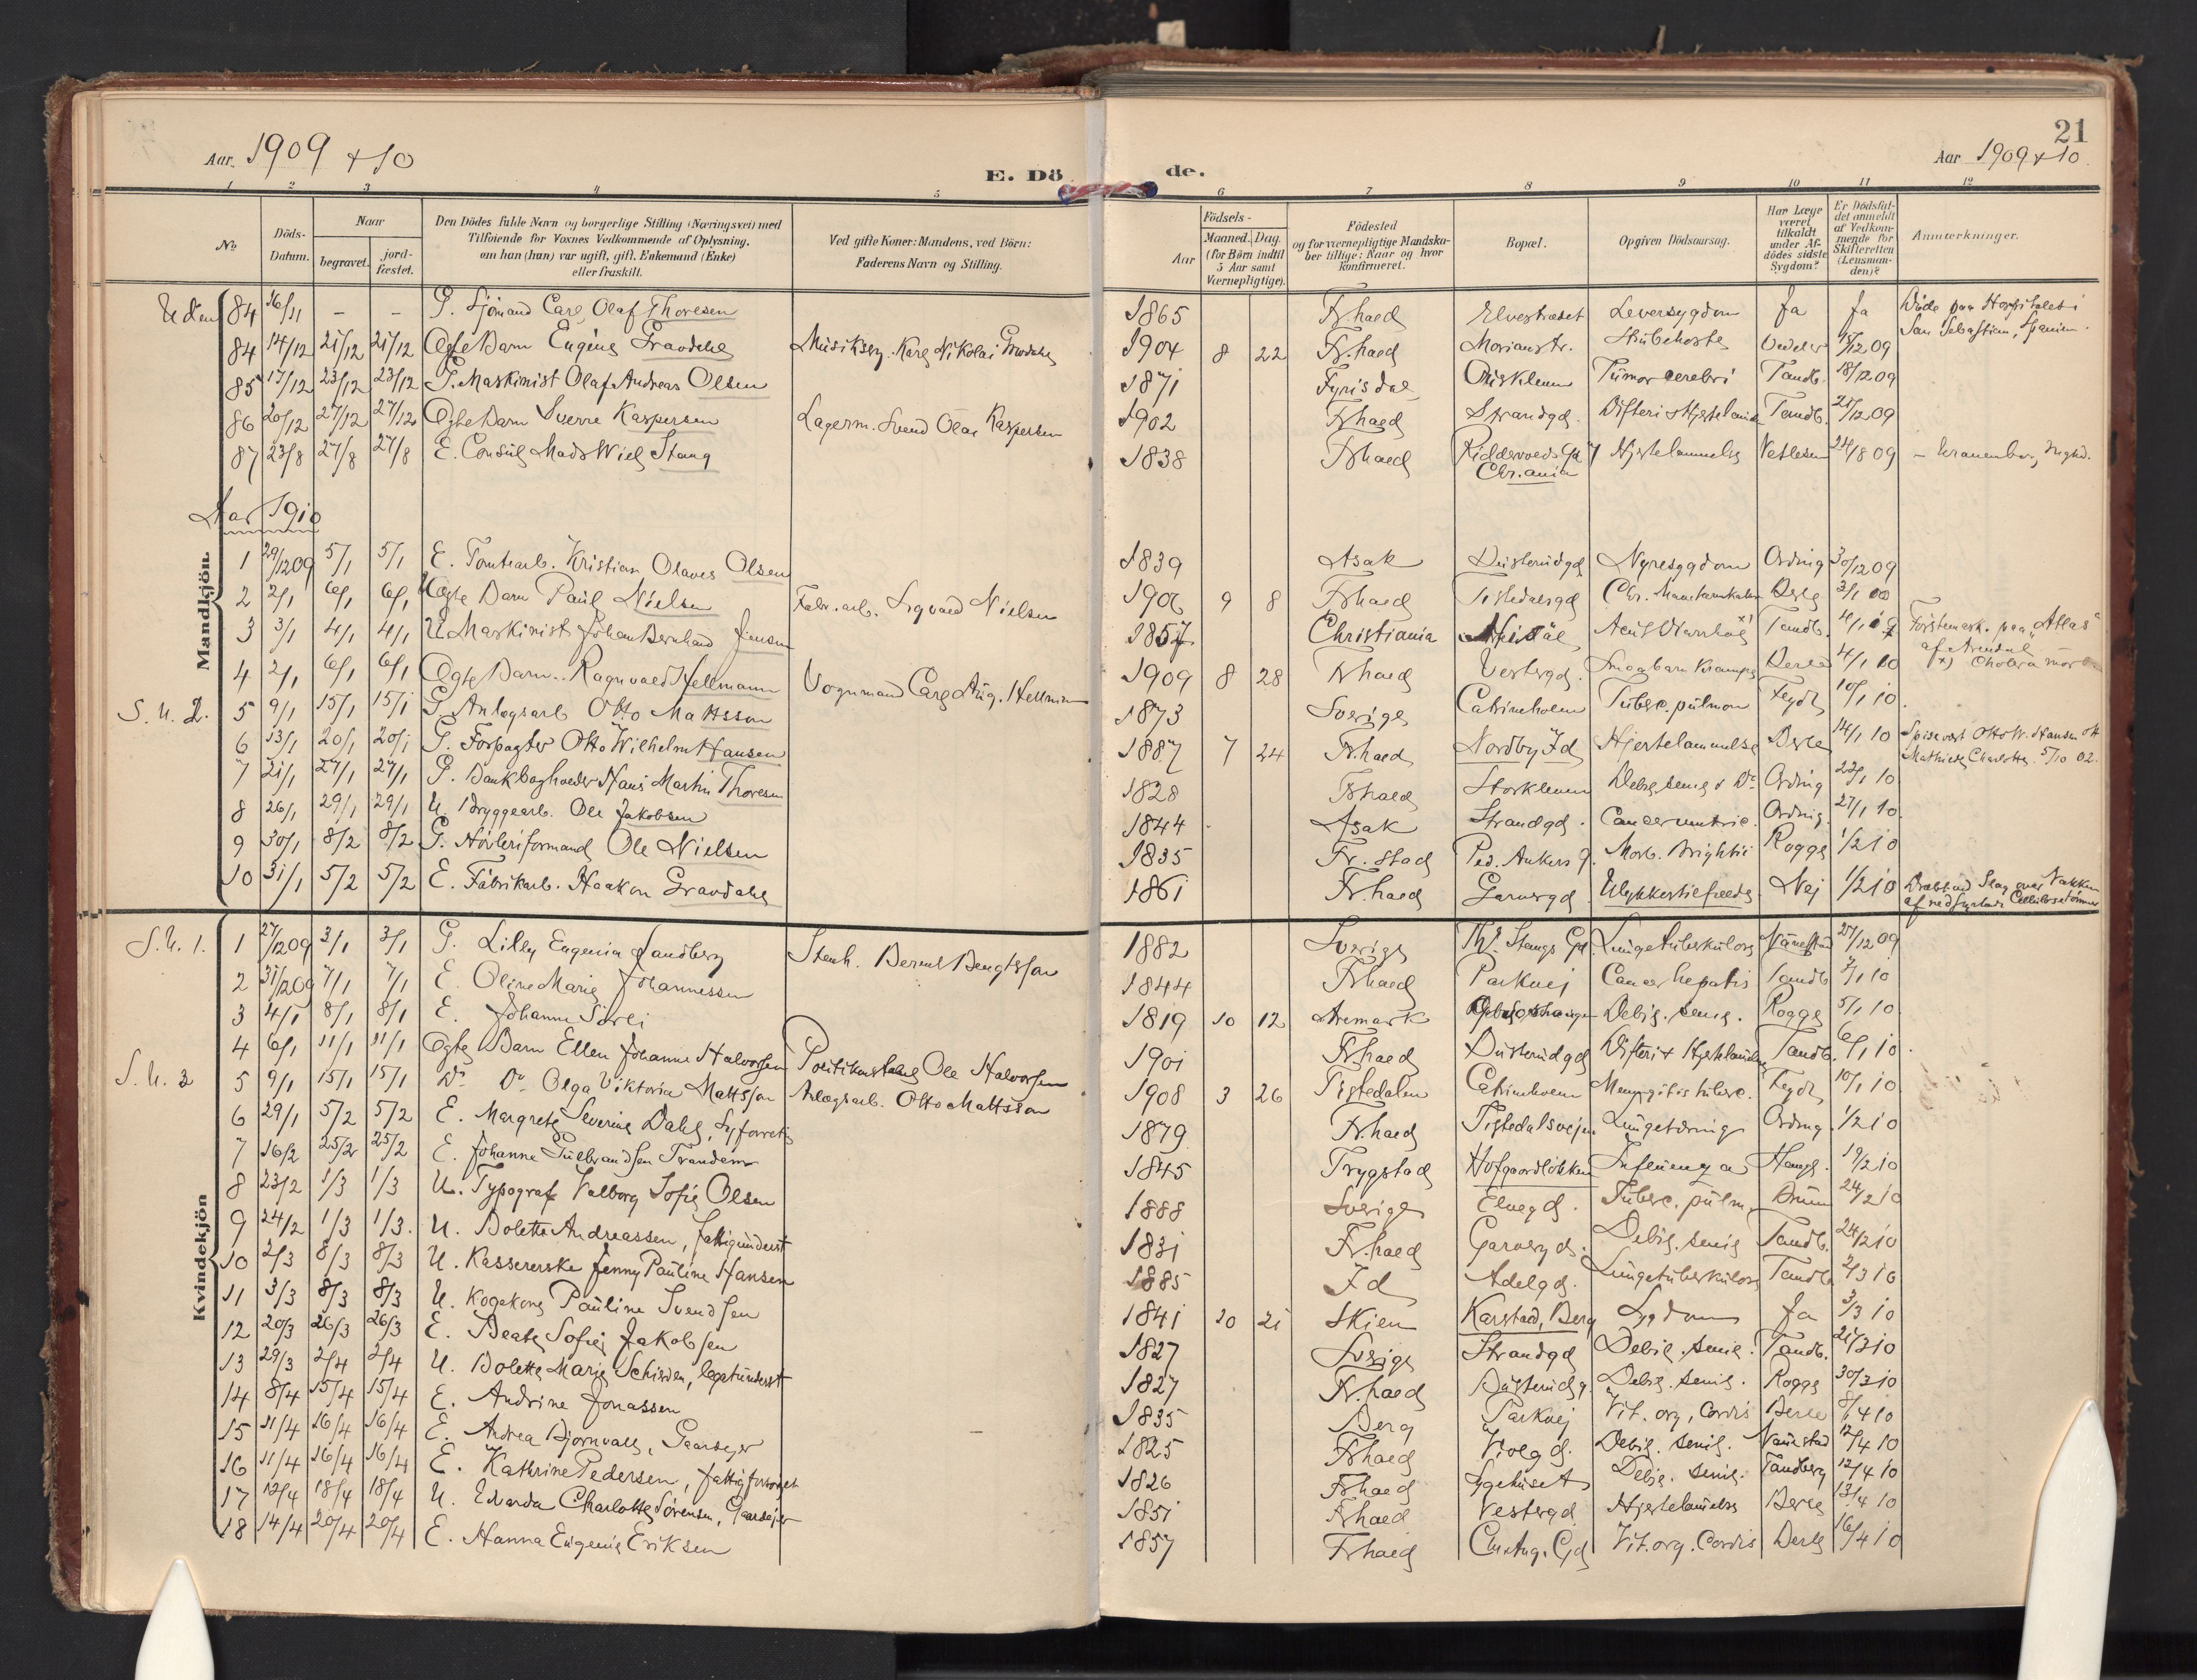 Aar. 1909 + 10
E. Dö
de.
21
Aar 1909 + 10.
1 2 3 4 5 6 7 8 9 10 11 12
No
Döds-Datum.
Naar
begravet.
jord-fæstet.
Den Dödes fulde Navn og borgerlige Stilling (Næringsvei) med
Tilföiende for Voxnes Vedkommende af Oplysning,
om han (hun) var ugift, gift, Enkemand (Enke)
eller fraskilt.
Ved gifte Koner: Mandens, ved Börn:
Faderens Navn og Stilling.
Födsels-
Aar
Maaned. Dag.
(for Börn indtil
5 Aar samt
Værnepligtige).
Födested
og for værnepligtige Mandska-
ber tillige: Naar og hvor
konfirmeret.
Bopæl.
Opgiven Dödsaarsag.
Har Læge
været
tilkaldt
under Af-
dödes sidste
Sygdom?
Er Dödsfal-
det anmeldt
af Vedkom-
mende for
Skifteretten
(Lensman-
den)?
Anmærkninger.
Uden 84 16/11 – – G. Sjömand Carl Olaf Thoresen 1865 Fr.hald Elvestrædet Leversygdom Ja Ja Döde paa Hospitalet i
San Sebastian, Spanien.
84 14/12 21/12 21/12 Ægte Barn Eugène Gravdahl Musiksrg. Karl Nikolai Gravdahl 1904 8 22 Fr.hald Morianstr. Strubehoste 12 09
85 17/12 23/12 23/12 G. Maskinist Olaf Andreas Olsen 1871 Fyrisdal Tumor cerebri Tandb. 18/12 09
86 20/12 27/12 27/12 Ægte Barn Sverre Kaspersen Lagerm. Svend Olai Kaspersen 1902 Fr.hald Strandgd. Difteri Hjertelam Tandb. 21/12 09
87 23/8 27/8 27/8 E. Consul Mads Wiel Stang 1838 Fr.hald Riddervolds Gd 7 Chr.ania Hjertelammelse Vetlesen 24/8 09
Aar 1910
Mandkjön.
1 29/12 09 5/1 5/1 E. Tomtearb. Kristian Olaves Olsen 1839 Asak Düsterudgd Nyresygdom Ording 30/12 09
2 2/1 6/1 6/1 Ægte Barn Paul Nielsen Fabr.arb. Sigvald Nielsen 1906 9 8 Fr.hald Tistedalsgd Berle 3/1
3 3/1 4/1 4/1 U Maskinist Johan Bernhard Jensen 1857 Christiania Tandb. 4/1 Förstemask. paa „Atlas“
af Arendal
x) Cholera
4 2/1 6/1 6/1 Ægte Barn. Ragnvald Hellmann Vognmand Carl Aug. Hellmann 1909 8 28 Fr.hald Vestergd. Smaabarn Krampe Berle 4/1 10
S. U. 2. 5 9/1 15/1 15/1 G. Anlægsarb Otto Mattsson 1873 Sverige Catrineholm Tuberc. pulmon Feydt 10/1 10
6 13/1 20/1 20/1 G. Forpagter Otto Wilhelm Hansen 1887 7 24 Fr.hald Nordby Id Hjertelammelse Berle 14/1 10 Spisevært Otto W. Hansen
Mathilde Charlotte 5/10 02.
7 21/1 27/1 27/1 G. Bankbogholder Hans Martin Thoresen 1828 Fr.hald Storklemm Debil. senil Ording 22/1 10
8 26/1 29/1 29/1 U. Bryggearb. Ole Jakobsen 1844 Asak Strandgd. Cancer ventric. Ording. 27/1 10.
9 30/1 8/2 8/2 G. Hövleriformand Ole Nielsen 1835 Fr.stad Ped. Ankers g. Morb. Brightii Rogge 1/2 10
10 31/1 5/2 5/2 E. Fabrikarb. Haakon Gravdahl 1861 Fr.hald Garvergd Ulykkestilfælde Nej 1/2 10 Dræbt ved Slag over Nakken
af nedstyrtende Cellulosetömmer
Kvindekjön
S. U. 1. 1 27/12 09 3/1 3/1 G. Lilly Eugenia Sandberg Stenh. Bernt Bengtsson 1882 Sverige Th. Stangs Gd. Lungetuberkulose 27/12 09
2 31/12 09 7/1 7/1 E. Oline Marie Johannessen 1844 Fr.hald Parkvej Cancer hepatis Tandb 10
3 4/1 8/1 8/1 E. Johanne Sörli 1819 10 12 Aremark Debil. senil. Rogge 5/1 10.
4 6/1 11/1 11/1 Ægte Barn Ellen Johanne Halvorsen Politikonstabel Ole Halvorsen 1901 Fr.hald Düsterudgd Difteri + Hjertelammelse Tandb. 6/1 10.
S. U. 3 5 9/1 15/1 15/1 Do Do Olga Viktoria Mattsson Anlægsarb. Otto Mattsson 1908 3 26 Tistedalen Catrineholm Menyngitis tuberc. Feydt 10/1 10
6 29/1 5/2 5/2 E. Margrete Severine Dahl, Syforretn 1879 Fr.hald Tistedalsvejen Lungetæring Ording 1/2 10
7 16/2 25/2 25/2 E. Johanne Gulbrandsen Trandem 1845 Trygstad Hofgaardlökken Influenza Haugl. 19/2 10
8 23/2 1/3 1/3 U. Typograf Valborg Sofie Olsen 1888 Sverige Elvegd. Tuberc. pulm. Brun 24/2 10
9 24/2 1/3 1/3. U. Bolette Andreassen, fattigunderst 1831 Fr.hald Garvergd. Debil. senil Tandb. 24/2 10
10 2/3 8/3 8/3 U. Kassererske Jenny Pauline Hansen 1885 Id Adelgd. Lungetuberkulose Tandb 2/3 10
11 3/3 8/3 8/3 U. Kogekone Pauline Svendsen 1841 10 21 Skien Karstad, Berg Sygdom Ja 3/3 10
12 20/3 26/3 26/3 E. Beate Sofie Jakobsen 1827 Sverige Strandgd Debil. senil. Tandb. 21/3 10
13 29/3 2/4 2/4 U. Bolette Marie Schiwen, legatunderst 1827 Fr.hald Düsterudg. Debil. senil. Rogge 30/3 10
14 8/4 15/4 15/4 E. Andrine Jonassen 1835 Berg Parkvej Vit. org. Cordis Berle 8/4 10
15 11/4 16/4 16/4 E. Andrea Björnvall, Gaardejer 1825 Fr.hald Violgd. Debil. senil. 12/4 10
16 11/4 16/4 16/4 E. Kathrine Pedersen, fattigforsörget 1826 Fr.hald Sygehuset Debil. senil. Tandberg 12/4 10
17 12/4 18/4 18/4 U. Edvarda Charlotte Sörensen, Gaardejer 1851 Fr.hald Vestergd. Hjertelamelse Berle 13/4 10
18 14/4 20/4 20/4 E. Hanna Eugenie Eriksen 1857 Fr.hald Chr. Aug. Gd Vit. org. Cordis Berle 16/4 10